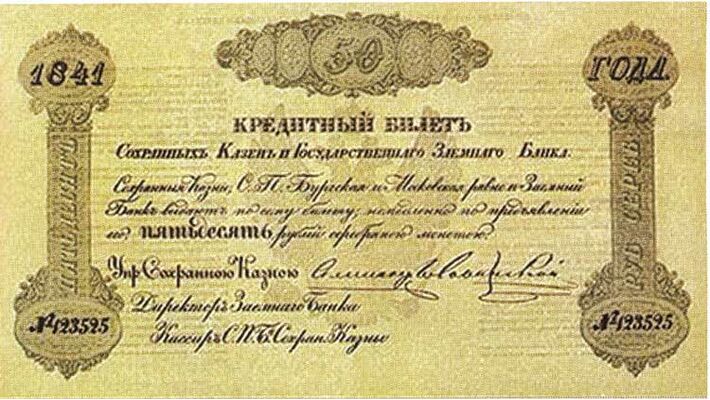 50
1841 ГОДА
КРЕДИТНЫЙ БИЛЕТЪ
Сохранныхъ Казенъ и Государственнаго Заемнаго Банка.
Сохранныя Казны, С. П. Бургская и Московская равно и Заемный
Банкъ выдаютъ по сему билету, немедленно по предъявленіи
его, пятьдесятъ рублей серебряною монетою.
Упр. Сохранною Казною
Директоръ Заемнаго Банка
Кассиръ С. П. Б. Сохран. Казны
ПЯТЬДЕСЯТЪ
РУБ. СЕРЕБ.
№ 123525
№ 123525